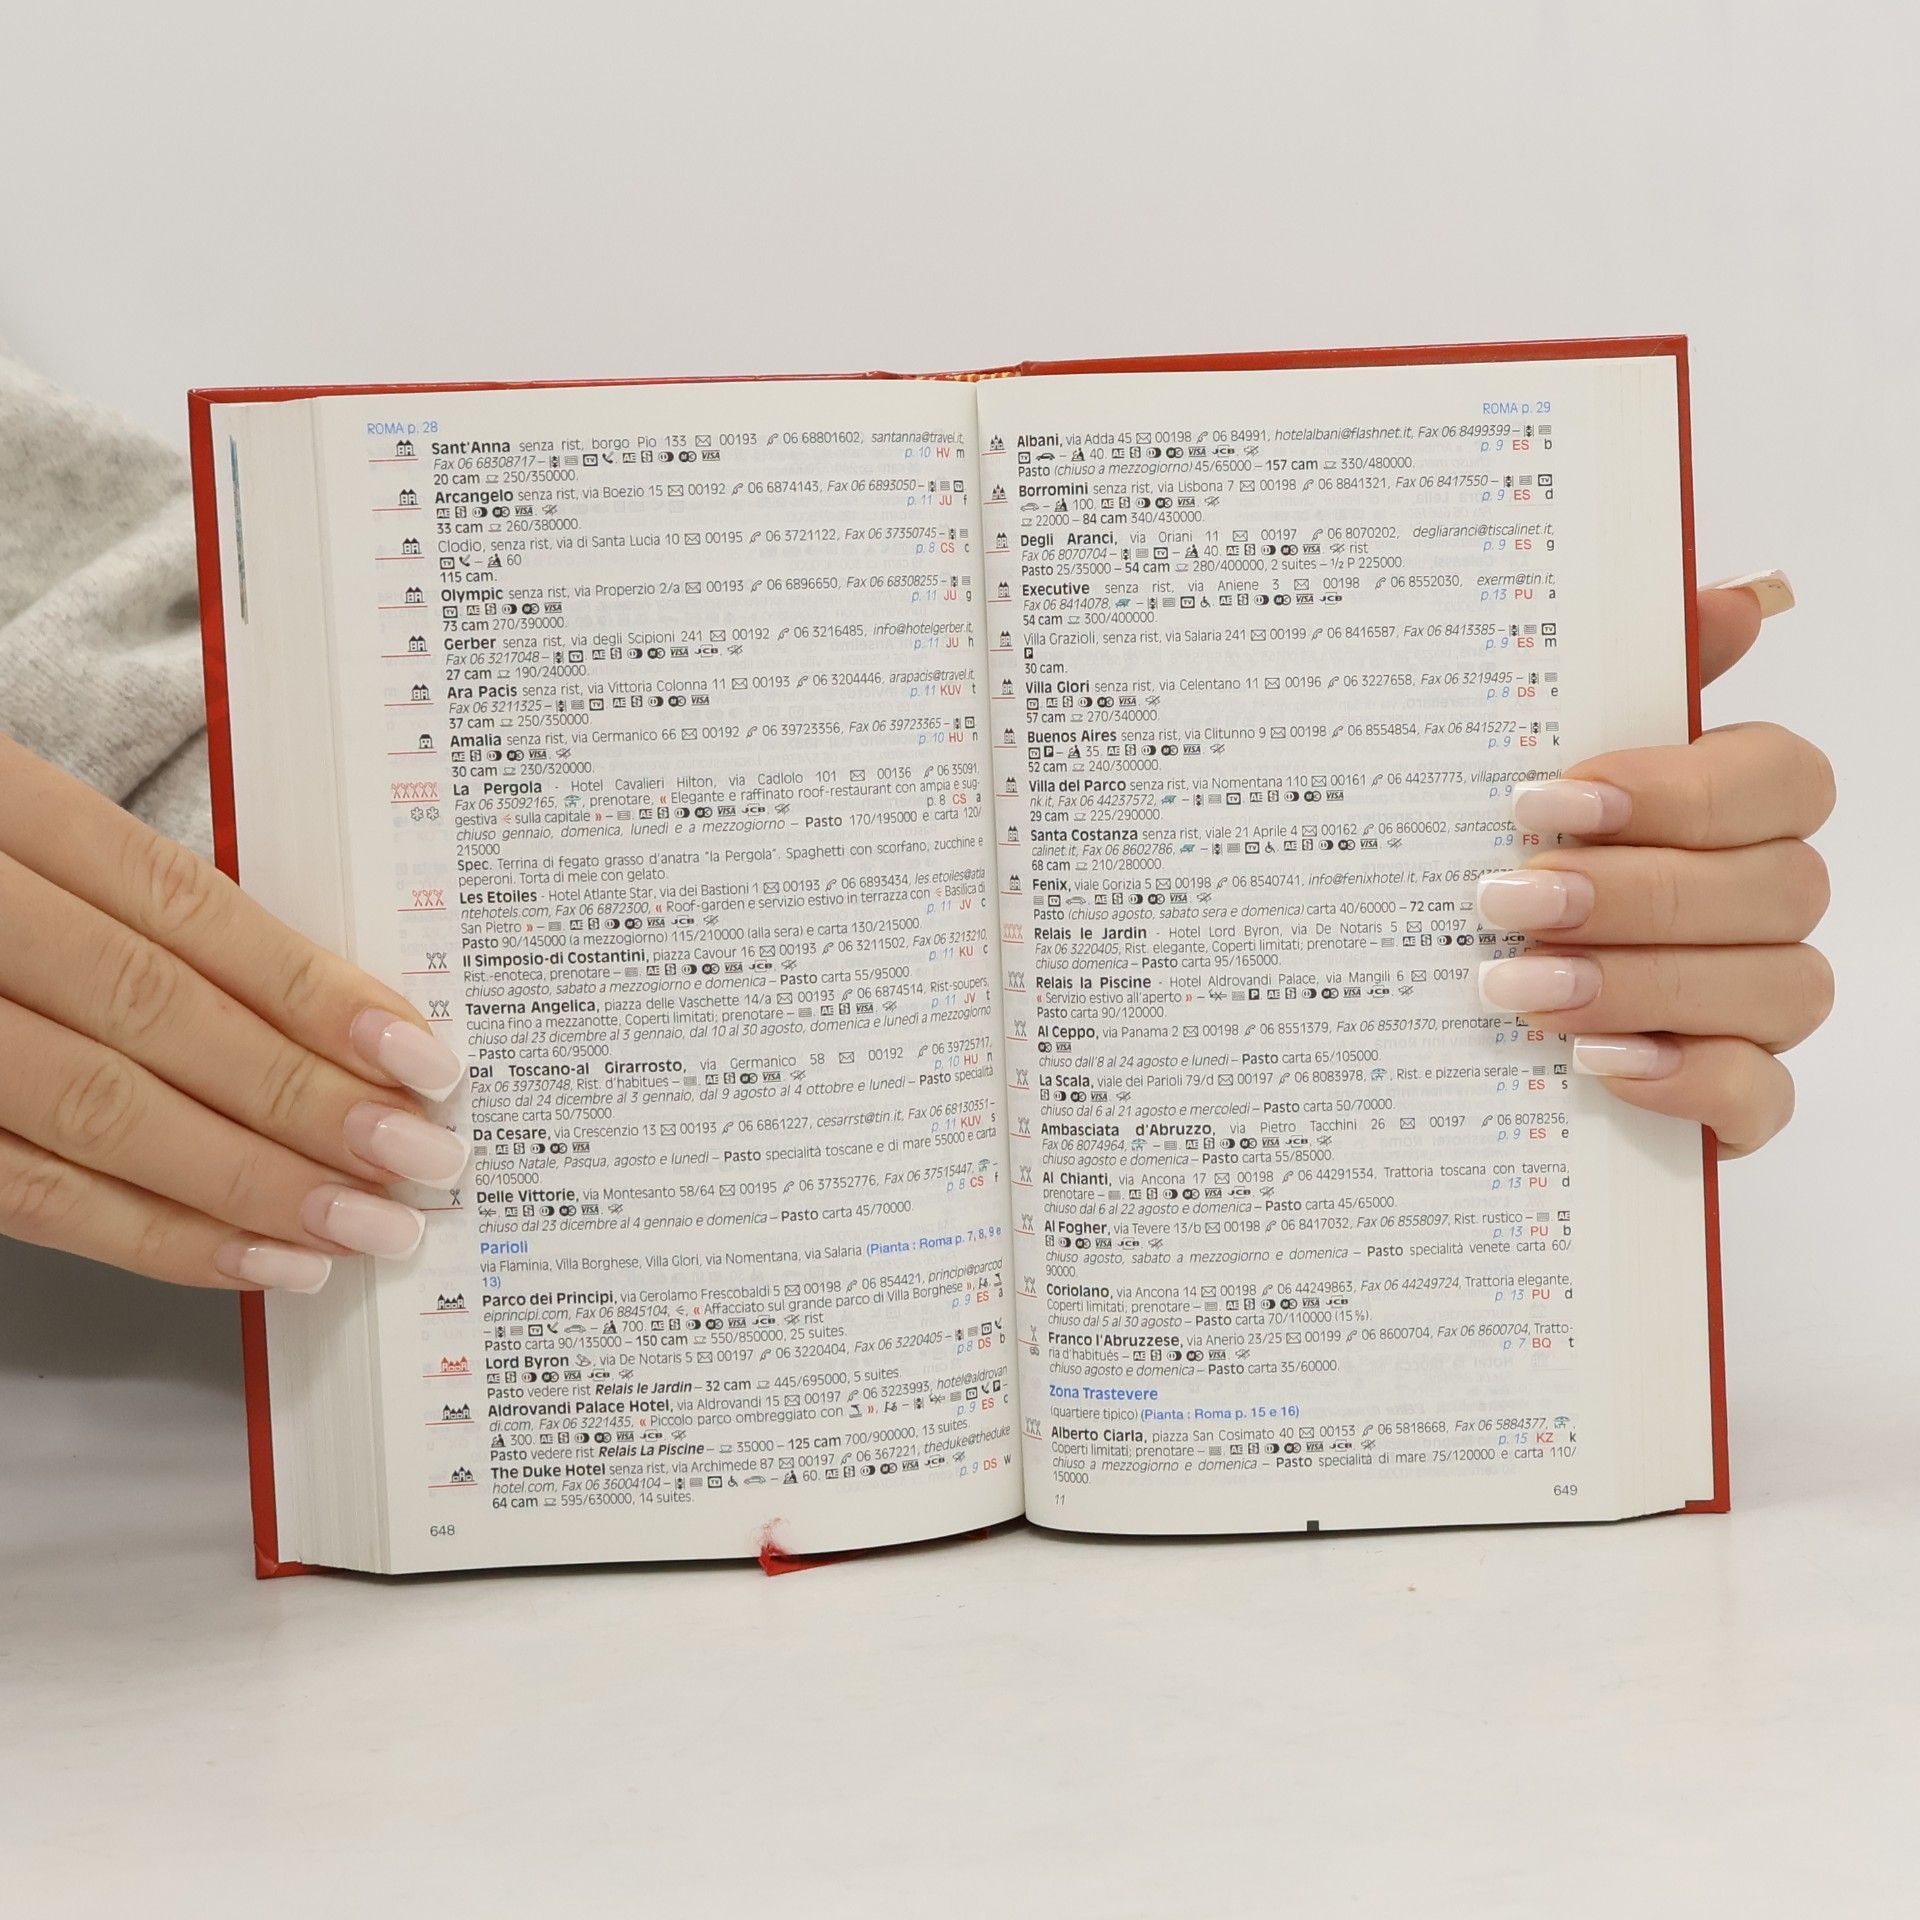 ROMA p. 28
Sant'Anna senza rist, borgo Pio 133 00193 06 68801602, santanna@travel.it,
Fax 06 68308717 – TV AE VISA p. 10 HV m
20 cam 250/350000.
Arcangelo senza rist, via Boezio 15 00192 06 6874143, Fax 06 6893050 – TV
AE VISA p. 11 JU f
33 cam 260/380000.
Clodio, senza rist, via di Santa Lucia 10 00195 06 3721122, Fax 06 37350745 –
TV – 60 p. 8 CS c
115 cam.
Olympic senza rist, via Properzio 2/a 00193 06 6896650, Fax 06 68308255 –
TV AE VISA p. 11 JU g
73 cam 270/390000.
Gerber senza rist, via degli Scipioni 241 00192 06 3216485, info@hotelgerber.it,
Fax 06 3217048 – TV AE VISA JCB p. 11 JU h
27 cam 190/240000.
Ara Pacis senza rist, via Vittoria Colonna 11 00193 06 3204446, arapacis@travel.it,
Fax 06 3211325 – TV AE VISA p. 11 KUV t
37 cam 250/350000
Amalia senza rist, via Germanico 66 00192 06 39723356, Fax 06 39723365 – TV
AE VISA p. 10 HU n
30 cam 230/320000.
La Pergola - Hotel Cavalieri Hilton, via Cadlolo 101 00136 06 35091,
Fax 06 35092165, prenotare, « Elegante e raffinato roof-restaurant con ampia e sug-
gestiva sulla capitale » – AE VISA JCB p. 8 CS a
chiuso gennaio, domenica, lunedì e a mezzogiorno – Pasto 170/195000 e carta 120/
215000
Spec. Terrina di fegato grasso d'anatra "la Pergola". Spaghetti con scorfano, zucchine e
peperoni. Torta di mele con gelato.
Les Etoiles - Hotel Atlante Star, via dei Bastioni 1 00193 06 6893434, les etoiles@atla
ntehotels.com, Fax 06 6872300, « Roof-garden e servizio estivo in terrazza con Basilica di
San Pietro » – AE VISA JCB p. 11 JV c
Pasto 90/145000 (a mezzogiorno) 115/210000 (alla sera) e carta 130/215000.
Il Simposio-di Costantini, piazza Cavour 16 00193 06 3211502, Fax 06 3213210,
Rist.-enoteca, prenotare – AE VISA JCB p. 11 KU c
chiuso agosto, sabato a mezzogiorno e domenica – Pasto carta 55/95000.
Taverna Angelica, piazza delle Vaschette 14/a 00193 06 6874514, Rist-soupers,
cucina fino a mezzanotte, Coperti limitati; prenotare – AE VISA p. 11 JV t
chiuso dal 23 dicembre al 3 gennaio, dal 10 al 30 agosto, domenica e lunedì a mezzogiorno
– Pasto carta 60/95000.
Dal Toscano-al Girarrosto, via Germanico 58 00192 06 39725717,
Fax 06 39730748, Rist. d'habitues – AE VISA p. 10 HU n
chiuso dal 24 dicembre al 3 gennaio, dal 9 agosto al 4 ottobre e lunedì – Pasto specialità
toscane carta 50/75000.
Da Cesare, via Crescenzio 13 00193 06 6861227, cesarrst@tin.it, Fax 06 68130351 –
AE VISA p. 11 KUV s
chiuso Natale, Pasqua, agosto e lunedì – Pasto specialità toscane e di mare 55000 e carta
60/105000.
Delle Vittorie, via Montesanto 58/64 00195 06 37352776, Fax 06 37515447, –
AE VISA p. 8 CS f
chiuso dal 23 dicembre al 4 gennaio e domenica – Pasto carta 45/70000.
Parioli
via Flaminia, Villa Borghese, Villa Glori, via Nomentana, via Salaria (Pianta : Roma p. 7, 8, 9 e
13)
Parco dei Principi, via Gerolamo Frescobaldi 5 00198 06 854421, principi@parcod
eiprincipi.com, Fax 06 8845104, « Affacciato sul grande parco di Villa Borghese »,
– TV – 700. AE VISA JCB rist p. 9 ES a
Pasto carta 90/135000 – 150 cam 550/850000, 25 suites.
Lord Byron, via De Notaris 5 00197 06 3220404, Fax 06 3220405 – TV
AE VISA JCB p.8 DS b
Pasto vedere rist Relais le Jardin – 32 cam 445/695000, 5 suites.
Aldrovandi Palace Hotel, via Aldrovandi 15 00197 06 3223993, hotel@aldrovan
di.com, Fax 06 3221435, « Piccolo parco ombreggiato con », – TV P –
300. AE VISA JCB p. 9 ES c
Pasto vedere rist Relais La Piscine – 35000 – 125 cam 700/900000, 13 suites.
The Duke Hotel senza rist, via Archimede 87 00197 06 367221, theduke@theduke
hotel.com, Fax 06 36004104 – TV – 60. AE VISA JCB p. 9 DS w
64 cam 595/630000, 14 suites.
648
ROMA p. 29
Albani, via Adda 45 00198 06 84991, hotelalbani@flashnet.it, Fax 06 8499399 –
TV – 40. AE VISA JCB p. 9 ES b
Pasto (chiuso a mezzogiorno) 45/65000 – 157 cam 330/480000.
Borromini senza rist, via Lisbona 7 00198 06 8841321, Fax 06 8417550 – TV
– 100. AE VISA p. 9 ES d
22000 – 84 cam 340/430000.
Degli Aranci, via Oriani 11 00197 06 8070202, degliaranci@tiscalinet.it,
Fax 06 8070704 – TV – 40. AE VISA rist p. 9 ES g
Pasto 25/35000 – 54 cam 280/400000, 2 suites – 1/2 P 225000.
Executive senza rist, via Aniene 3 00198 06 8552030, exerm@tin.it,
Fax 06 8414078, – TV AE VISA JCB p.13 PU a
54 cam 300/400000.
Villa Grazioli, senza rist, via Salaria 241 00199 06 8416587, Fax 06 8413385 – TV
P p. 9 ES m
30 cam.
Villa Glori senza rist, via Celentano 11 00196 06 3227658, Fax 06 3219495 –
TV AE VISA p. 8 DS e
57 cam 270/340000.
Buenos Aires senza rist, via Clitunno 9 00198 06 8554854, Fax 06 8415272 –
TV P – 35. AE VISA p. 9 ES k
52 cam 240/300000.
Villa del Parco senza rist, via Nomentana 110 00161 06 44237773, villaparco@meli
nk.it, Fax 06 44237572, – TV AE VISA p. 9
29 cam 225/290000.
Santa Costanza senza rist, viale 21 Aprile 4 00162 06 8600602,
calinet it, Fax 06 8602786, – TV AE VISA JCB p.9 FS f
68 cam 210/280000.
Fenix, viale Gorizia 5 00198 06 8540741, info@fenixhotel.it, Fax 06
TV AE VISA
Pasto (chiuso agosto, sabato sera e domenica) carta 40/60000 – 72 cam
Relais le Jardin - Hotel Lord Byron, via De Notaris 5 00197
Fax 06 3220405, Rist. elegante, Coperti limitati; prenotare – AE VISA JCB
chiuso domenica – Pasto carta 95/165000. p. 8
Relais la Piscine - Hotel Aldrovandi Palace, via Mangili 6 00197
« Servizio estivo all'aperto » – P AE VISA JCB
Pasto carta 90/120000.
Al Ceppo, via Panama 2 00198 06 8551379, Fax 06 85301370, prenotare –
VISA p. 9 ES
chiuso dall'8 al 24 agosto e lunedì – Pasto carta 65/105000.
La Scala, viale dei Parioli 79/d 00197 06 8083978, Rist. e pizzeria serale – AE
VISA p. 9 ES s
chiuso dal 6 al 21 agosto e mercoledì – Pasto carta 50/70000.
Ambasciata d'Abruzzo, via Pietro Tacchini 26 00197 06 8078256,
Fax 06 8074964, – AE VISA JCB p. 9 ES e
chiuso agosto e domenica – Pasto carta 55/85000.
Al Chianti, via Ancona 17 00198 06 44291534, Trattoria toscana con taverna,
prenotare – AE VISA JCB p. 13 PU d
chiuso dal 6 al 22 agosto e domenica – Pasto carta 45/65000.
Al Fogher, via Tevere 13/b 00198 06 8417032, Fax 06 8558097, Rist. rustico – AE
VISA JCB p. 13 PU b
chiuso agosto, sabato a mezzogiorno e domenica – Pasto specialità venete carta 60/
90000.
Coriolano, via Ancona 14 00198 06 44249863, Fax 06 44249724, Trattoria elegante,
Coperti limitati; prenotare – AE VISA JCB p. 13 PU d
chiuso dal 5 al 30 agosto – Pasto carta 70/110000 (15 %).
Franco l'Abruzzese, via Anerio 23/25 00199 06 8600704, Fax 06 8600704, Tratto-
ria d'habitués – AE VISA p. 7 BQ t
chiuso agosto e domenica – Pasto carta 35/60000.
Zona Trastevere
(quartiere tipico) (Pianta : Roma p. 15 e 16)
Alberto Ciarla, piazza San Cosimato 40 00153 06 5818668, Fax 06 5884377,
Coperti limitati; prenotare – AE VISA JCB p. 15 KZ k
chiuso a mezzogiorno e domenica – Pasto specialità di mare 75/120000 e carta 110/
150000.
11
649